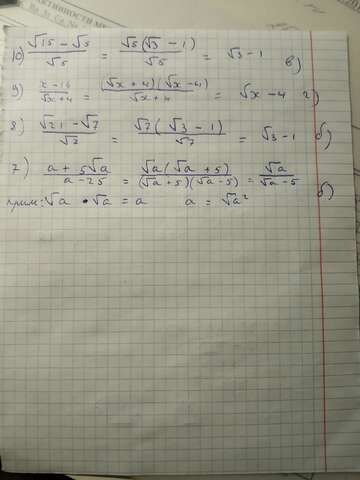 10) (√15 - √5)/√5 = √5(√3 - 1)/√5 = √3 - 1 в)
9) (x - 16)/(√x + 4) = (√x + 4)(√x - 4)/(√x + 4) = √x - 4 г)
8) (√21 - √7)/√7 = √7(√3 - 1)/√7 = √3 - 1 б)
7) (a + 5√a)/(a - 25) = √a(√a + 5)/(√a + 5)(√a - 5) = √a/(√a - 5) б)
прим: √a • √a = a a = √a²